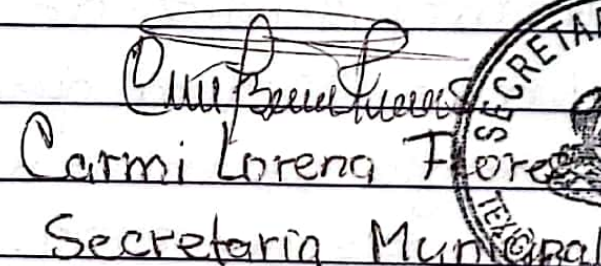 Carmi Lorena Flores
Secretaria Municipal
SECRETA
TEX